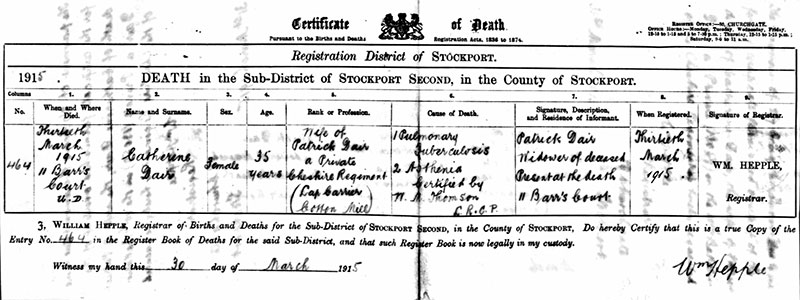 Certificate of Death.
Pursuant to the Births and Deaths Registration Acts, 1836 to 1874.
REGISTER OFFICE:— CHURCHGATE.
OFFICE HOURS:—Monday, Tuesday, Wednesday, Friday,
Saturday,
Registration District of STOCKPORT.
1915. DEATH in the Sub-District of STOCKPORT SECOND, in the County of STOCKPORT.
Columns 1. 2. 3. 4. 5. 6. 7. 8. 9.
No. When and Where Died. Name and Surname. Sex. Age. Rank or Profession. Cause of Death. Signature, Description, and Residence of Informant. When Registered. Signature of Registrar.
464
Thirtieth
March
1915
11 Barr's
Court
U.D
Catherine
Dair
Female
35
years
Wife of
Patrick Dair
a Private
Cheshire Regiment
(Cap Carrier
Cotton Mill)
1 Pulmonary
Tuberculosis
2 Asthenia
Certified by
W. M. Thomson
L.R.C.P.
Patrick Dair
Widower of deceased
Present at the death
11 Barr's Court
Thirtieth
March
1915
WM. HEPPLE,
Registrar.
3, WILLIAM HEPPLE, Registrar of Births and Deaths for the Sub-District of STOCKPORT SECOND, in the County of STOCKPORT, Do hereby Certify that this is a true Copy of the
Entry No. 464 in the Register Book of Deaths for the said Sub-District, and that such Register Book is now legally in my custody.
Witness my hand this 30 day of March 1915
Wm Hepple